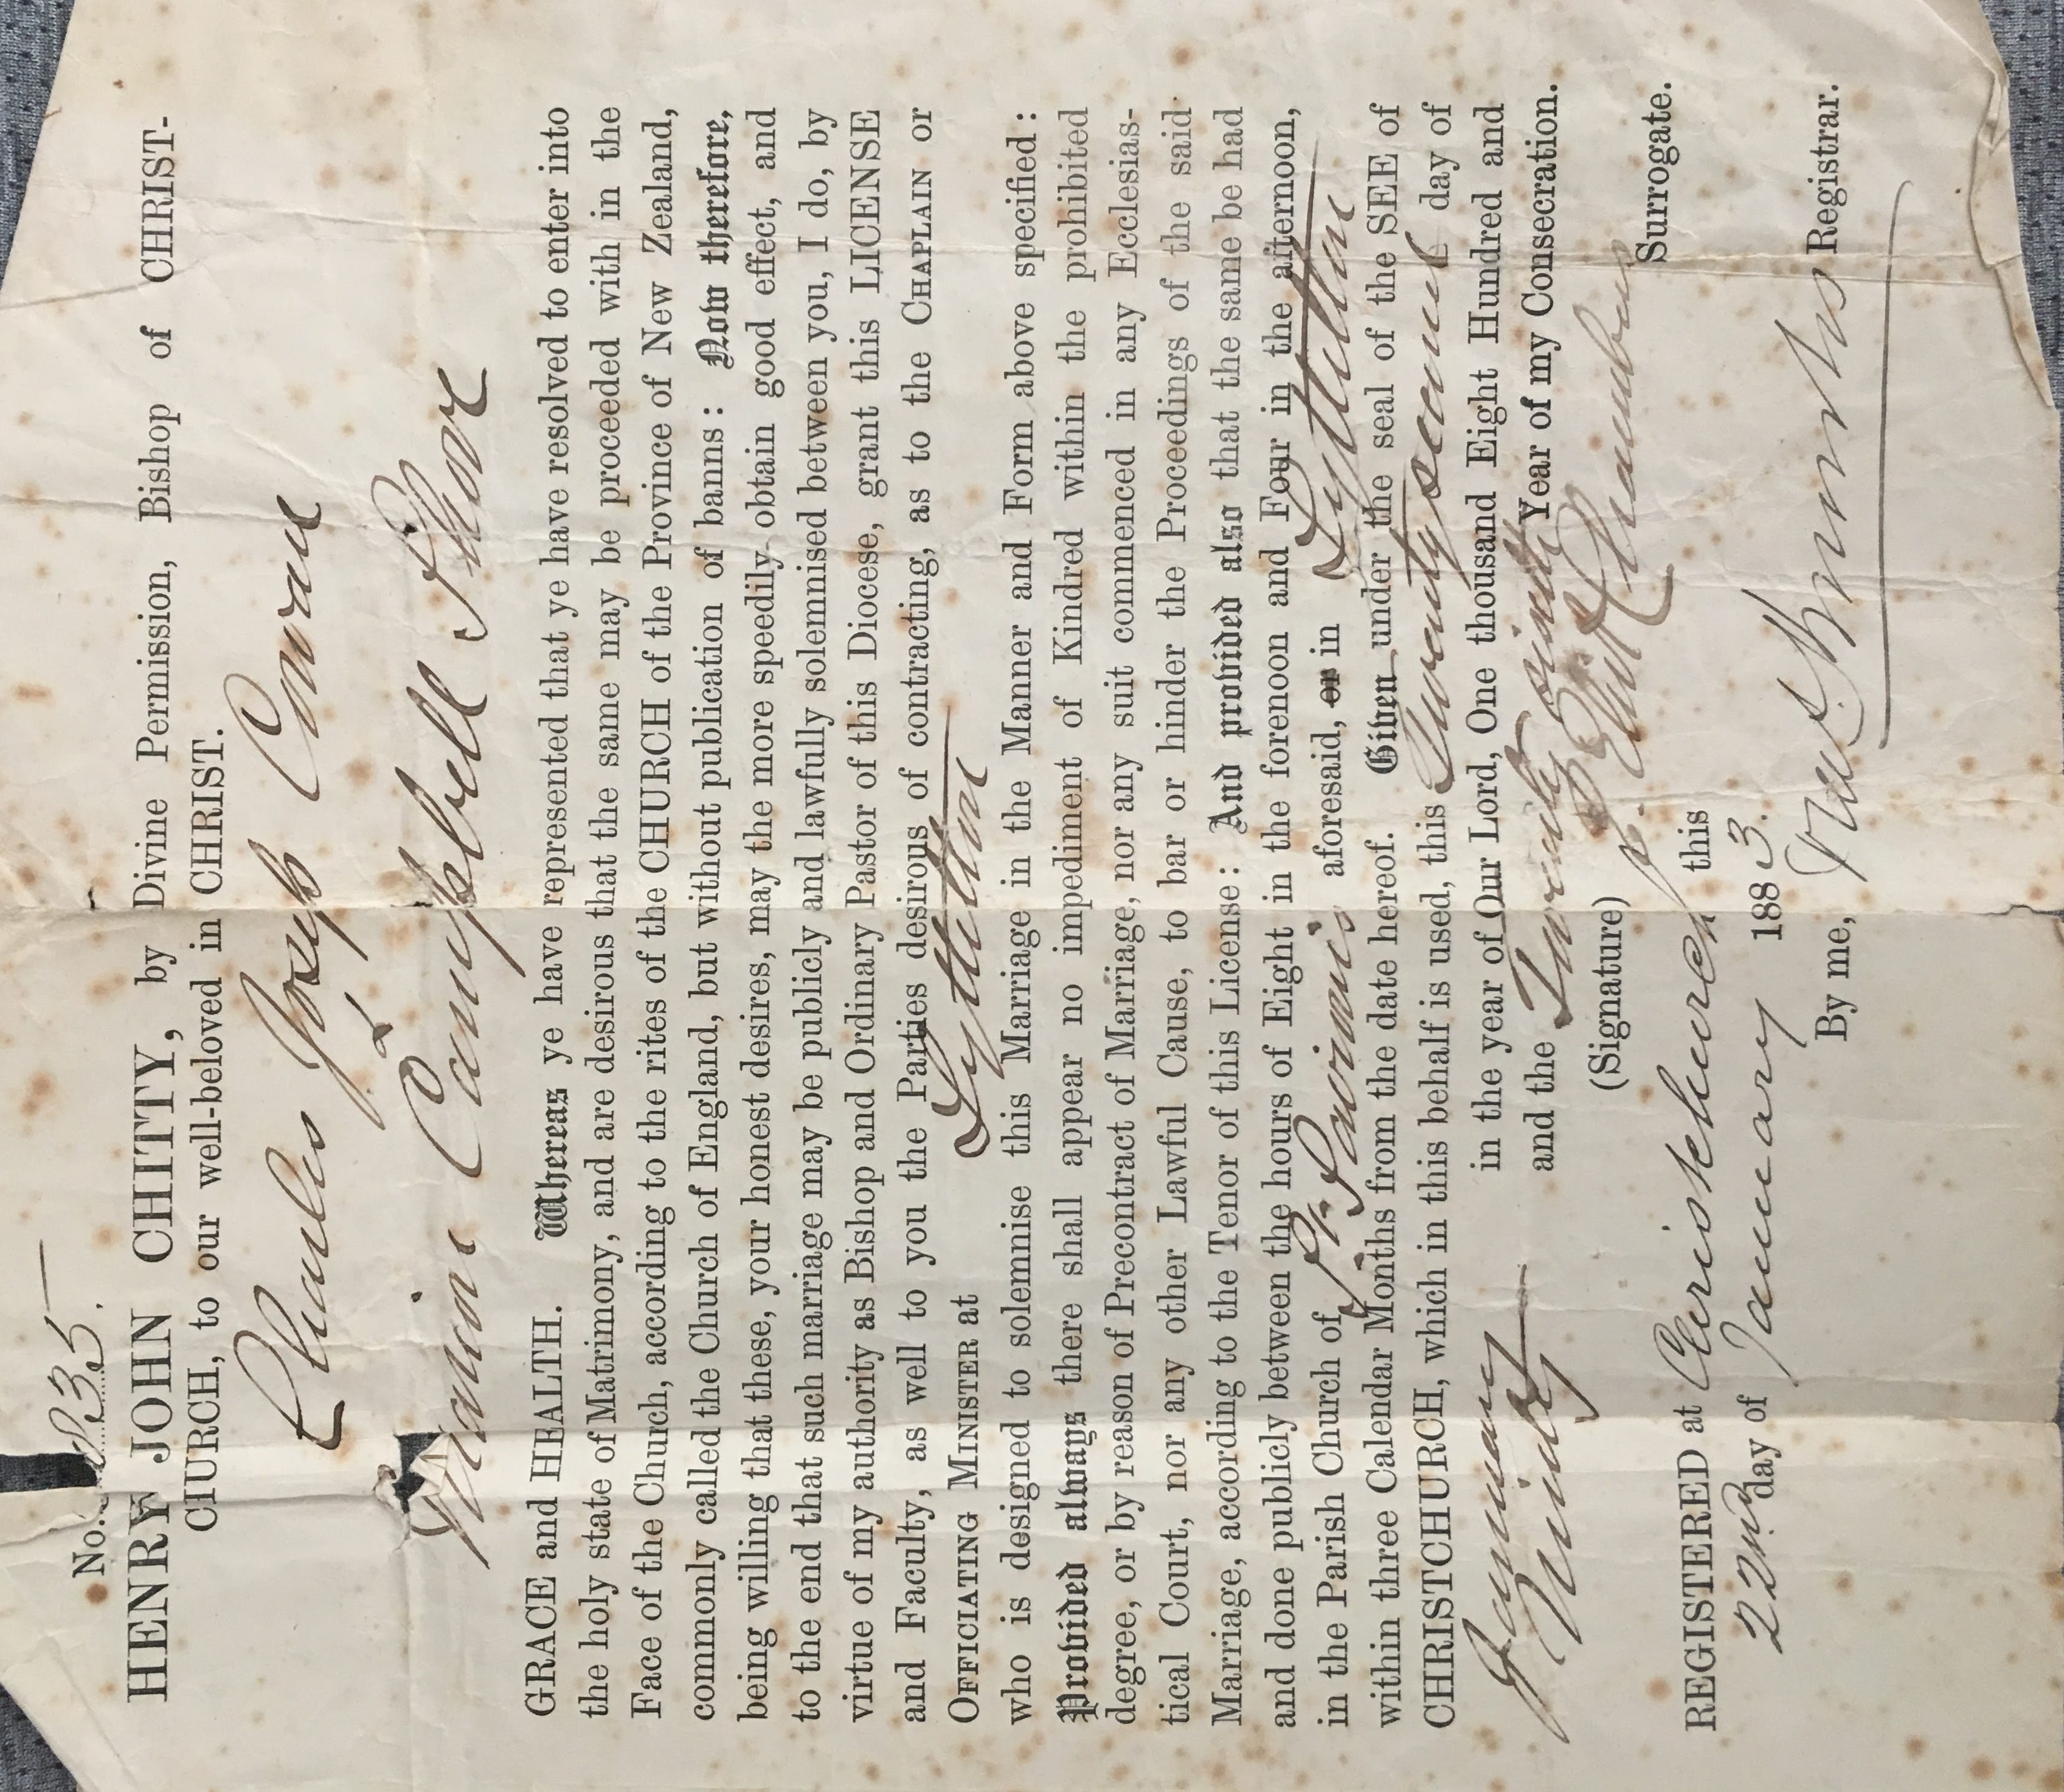 No. 835.
HENRY JOHN CHITTY, by Divine Permission, Bishop of CHRIST-
CHURCH, to our well-beloved in CHRIST.
Charles Joseph Cowan
&
Marion Campbell Shove
GRACE and HEALTH. Whereas ye have represented that ye have resolved to enter into
the holy state of Matrimony, and are desirous that the same may be proceeded with in the
Face of the Church, according to the rites of the CHURCH of the Province of New Zealand,
commonly called the Church of England, but without publication of banns: Now therefore,
being willing that these, your honest desires, may the more speedily obtain good effect, and
to the end that such marriage may be publicly and lawfully solemnised between you, I do, by
virtue of my authority as Bishop and Ordinary Pastor of this Diocese, grant this LICENSE
and Faculty, as well to you the Parties desirous of contracting, as to the CHAPLAIN or
OFFICIATING MINISTER at Lyttelton
who is designed to solemnise this Marriage in the Manner and Form above specified:
Provided always there shall appear no impediment of Kindred within the prohibited
degree, or by reason of Precontract of Marriage, nor any suit commenced in any Ecclesias-
tical Court, nor any other Lawful Cause, to bar or hinder the Proceedings of the said
Marriage, according to the Tenor of this License: And provided also that the same be had
and done publicly between the hours of Eight in the forenoon and Four in the afternoon,
in the Parish Church of St. Saviour's aforesaid, or in Lyttelton
within three Calendar Months from the date hereof. Given under the seal of the SEE of
CHRISTCHURCH, which in this behalf is used, this Twenty second day of
January in the year of Our Lord, One thousand Eight Hundred and
Ninety and the Twenty sixth Year of my Consecration.
(Signature) Eliot Chambers
Surrogate.
REGISTERED at Christchurch this
22nd day of January 1883.
By me, Registrar.